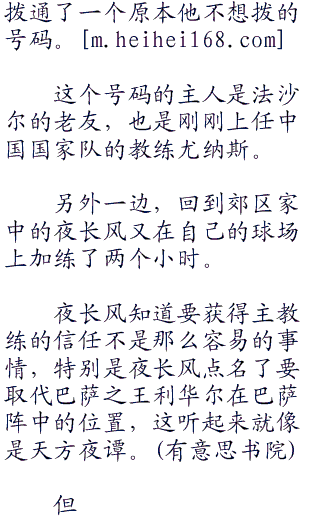 拨通了一个原本他不想拨的
号码。[m.heihei168.com]
这个号码的主人是法沙
尔的老友，也是刚刚上任中
国国家队的教练尤纳斯。
另外一边，回到郊区家
中的夜长风又在自己的球场
上加练了两个小时。
夜长风知道要获得主教
练的信任不是那么容易的事
情，特别是夜长风点名了要
取代巴萨之王利华尔在巴萨
阵中的位置，这听起来就像
是天方夜谭。(有意思书院)
但